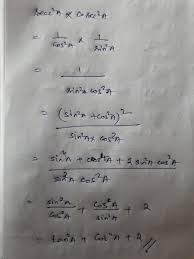 Sec²A × Cosec²A
= 1/cos²A × 1/sin²A
= 1/sin²A × cos²A
= (sin²A + cos²A)²/sin²A × cos²A
= sin⁴A + cos⁴A + 2 sin²A cos²A/sin²A cos²A
= sin²A/cos²A + cos²A/sin²A + 2
= tan²A + Cot²A + 2 //